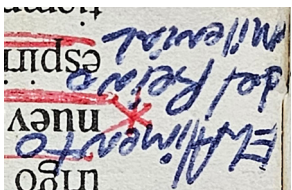 El Alimento
del Reino
Milenial
nuev
espiri